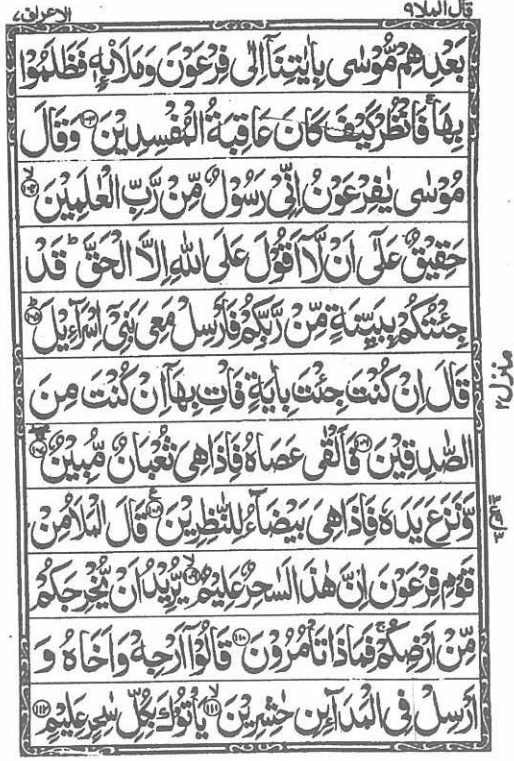 قال الملا ۹
الاعراف ۷
بَعْدِهِمْ مُّوْسٰى بِاٰيٰتِنَاۤ اِلٰى فِرْعَوْنَ وَمَلَا۟ئِهٖ فَظَلَمُوْا
بِهَاۚ فَانْظُرْ كَيْفَ كَانَ عَاقِبَةُ الْمُفْسِدِيْنَ ﴿۱۰۳﴾ وَقَالَ
مُوْسٰى يٰفِرْعَوْنُ اِنِّىْ رَسُوْلٌ مِّنْ رَّبِّ الْعٰلَمِيْنَ ۙ﴿۱۰۴﴾
حَقِيْقٌ عَلٰٓى اَنْ لَّاۤ اَقُوْلَ عَلَى اللّٰهِ اِلَّا الْحَقَّ ؕ قَدْ
جِئْتُكُمْ بِبَيِّنَةٍ مِّنْ رَّبِّكُمْ فَاَرْسِلْ مَعِىَ بَنِىْۤ اِسْرَآءِيْلَ ؕ﴿۱۰۵﴾
قَالَ اِنْ كُنْتَ جِئْتَ بِاٰيَةٍ فَاْتِ بِهَاۤ اِنْ كُنْتَ مِنَ
الصّٰدِقِيْنَ ﴿۱۰۶﴾ فَاَلْقٰى عَصَاهُ فَاِذَا هِىَ ثُعْبَانٌ مُّبِيْنٌ ﴿۱۰۷﴾
وَّنَزَعَ يَدَهٗ فَاِذَا هِىَ بَيْضَآءُ لِلنّٰظِرِيْنَ ﴿۱۰۸﴾ قَالَ الْمَلَاُ مِنْ
قَوْمِ فِرْعَوْنَ اِنَّ هٰذَا لَسٰحِرٌ عَلِيْمٌ ۙ﴿۱۰۹﴾ يُّرِيْدُ اَنْ يُّخْرِجَكُمْ
مِّنْ اَرْضِكُمْ ۚ فَمَاذَا تَاْمُرُوْنَ ﴿۱۱۰﴾ قَالُوْۤا اَرْجِهْ وَاَخَاهُ وَ
اَرْسِلْ فِى الْمَدَآئِنِ حٰشِرِيْنَ ۙ﴿۱۱۱﴾ يَاْتُوْكَ بِكُلِّ سٰحِرٍ عَلِيْمٍ ﴿۱۱۲﴾
منزل ۲